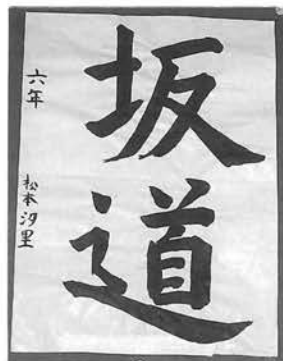 坂道
六年
松本汐里